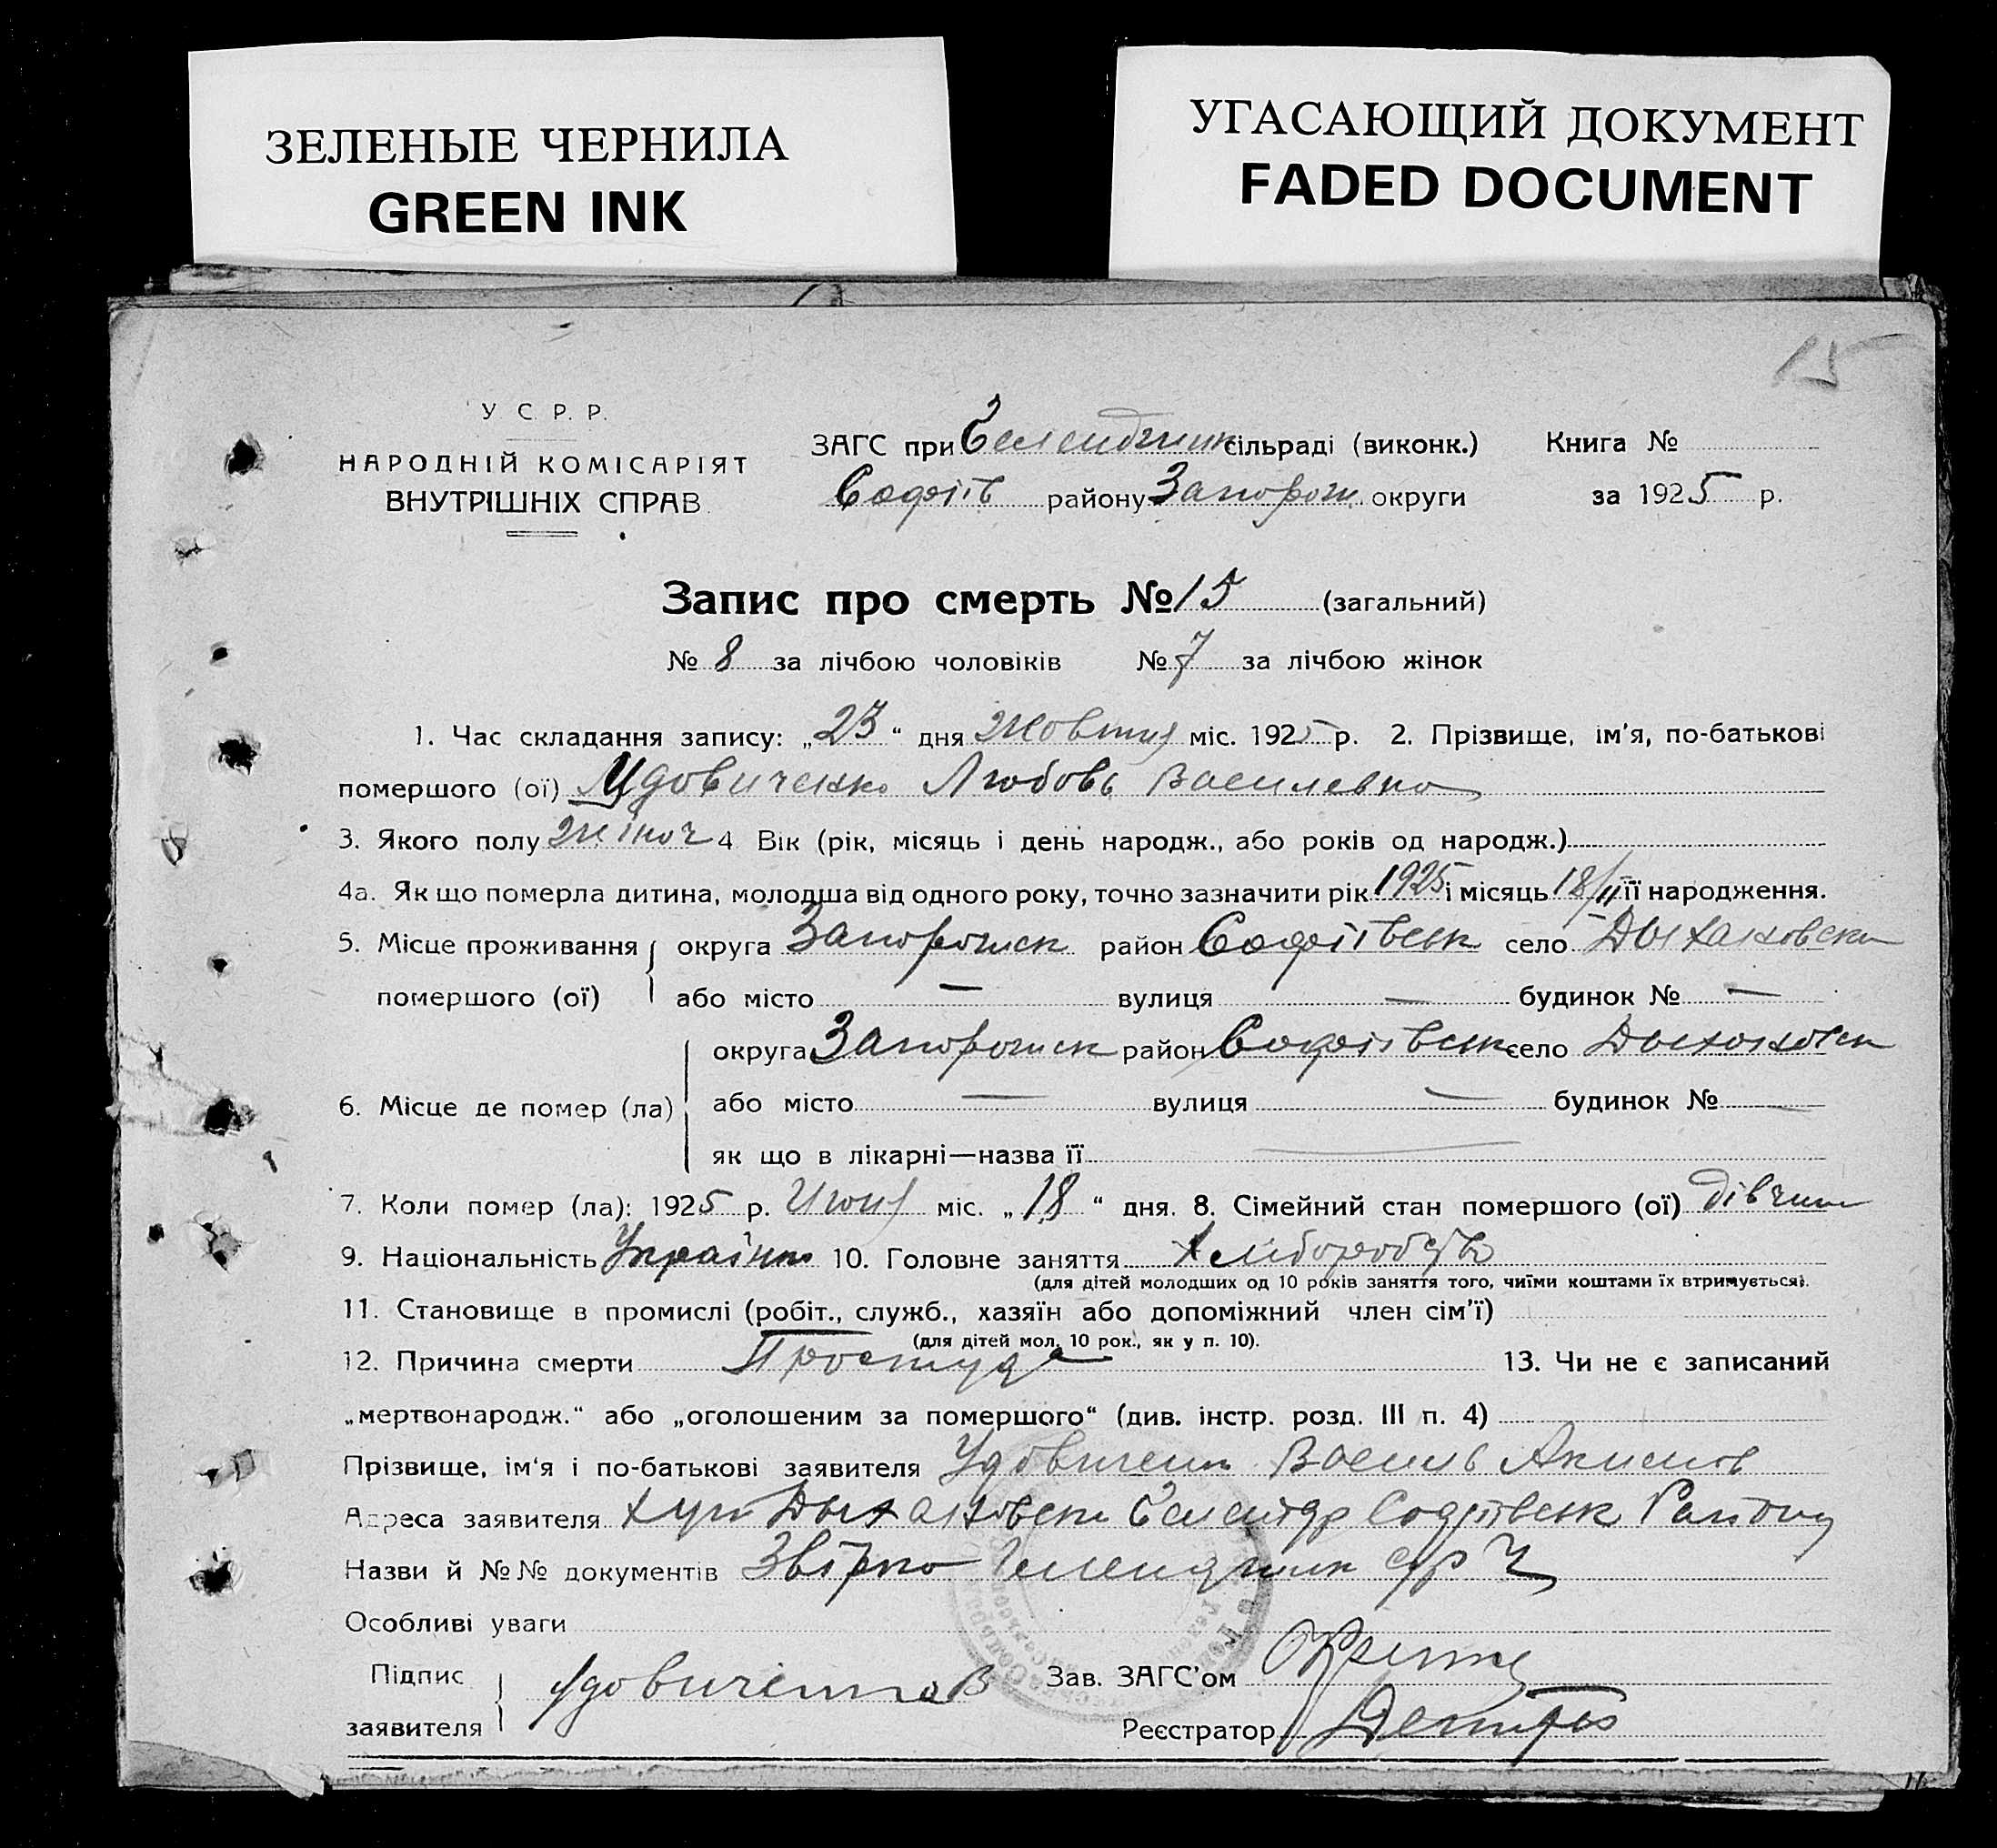 ЗЕЛЕНЫЕ ЧЕРНИЛА
GREEN INK
УГАСАЮЩИЙ ДОКУМЕНТ
FADED DOCUMENT
15
У С. Р. Р.
НАРОДНІЙ КОМІСАРІЯТ
ВНУТРІШНІХ СПРАВ
ЗАГС при сільраді (виконк.) Книга №
Софіїв району Запорож округи за 1925 р.
Запис про смерть № 15 (загальний)
№ 8 за лічбою чоловіків № 7 за лічбою жінок
1. Час складання запису: „23“ дня Жовтня міс. 1925 р. 2. Прізвище, ім'я, по-батькові
помершого (ої) Удовиченко Любовь Василевна
3. Якого полу жіноч 4 Вік (рік, місяць і день народж., або років од народж.)
4а. Як що померла дитина, молодша від одного року, точно зазначити рік 1925 і місяць 18/II її народження.
5. Місце проживання округа Запорожск район Софіївськ село
помершого (ої) або місто — вулиця — будинок № —
округа Запорожск район Софіївськ село
6. Місце де помер (ла) або місто — вулиця — будинок № —
як що в лікарні—назва її —
7. Коли помер (ла): 1925 р. Июня міс. „18“ дня. 8. Сімейний стан помершого (ої) дівчина
9. Національність Українка 10. Головне заняття Хліборобство
(для дітей молодших од 10 років заняття того, чиїми коштами їх втримується).
11. Становище в промислі (робіт., служб., хазяїн або допоміжний член сім'ї)
(для дітей мол. 10 рок., як у п. 10).
12. Причина смерти Простуда 13. Чи не є записаний
„мертвонародж.“ або „оголошеним за помершого“ (див. інстр. розд. III п. 4)
Прізвище, ім'я і по-батькові заявителя Удовиченко Василь Акимов
Адреса заявителя хут Софіївськ Району
Назви й №№ документів
Особливі уваги
Підпис
заявителя Удовиченко В
Зав. ЗАГС'ом
Реєстратор